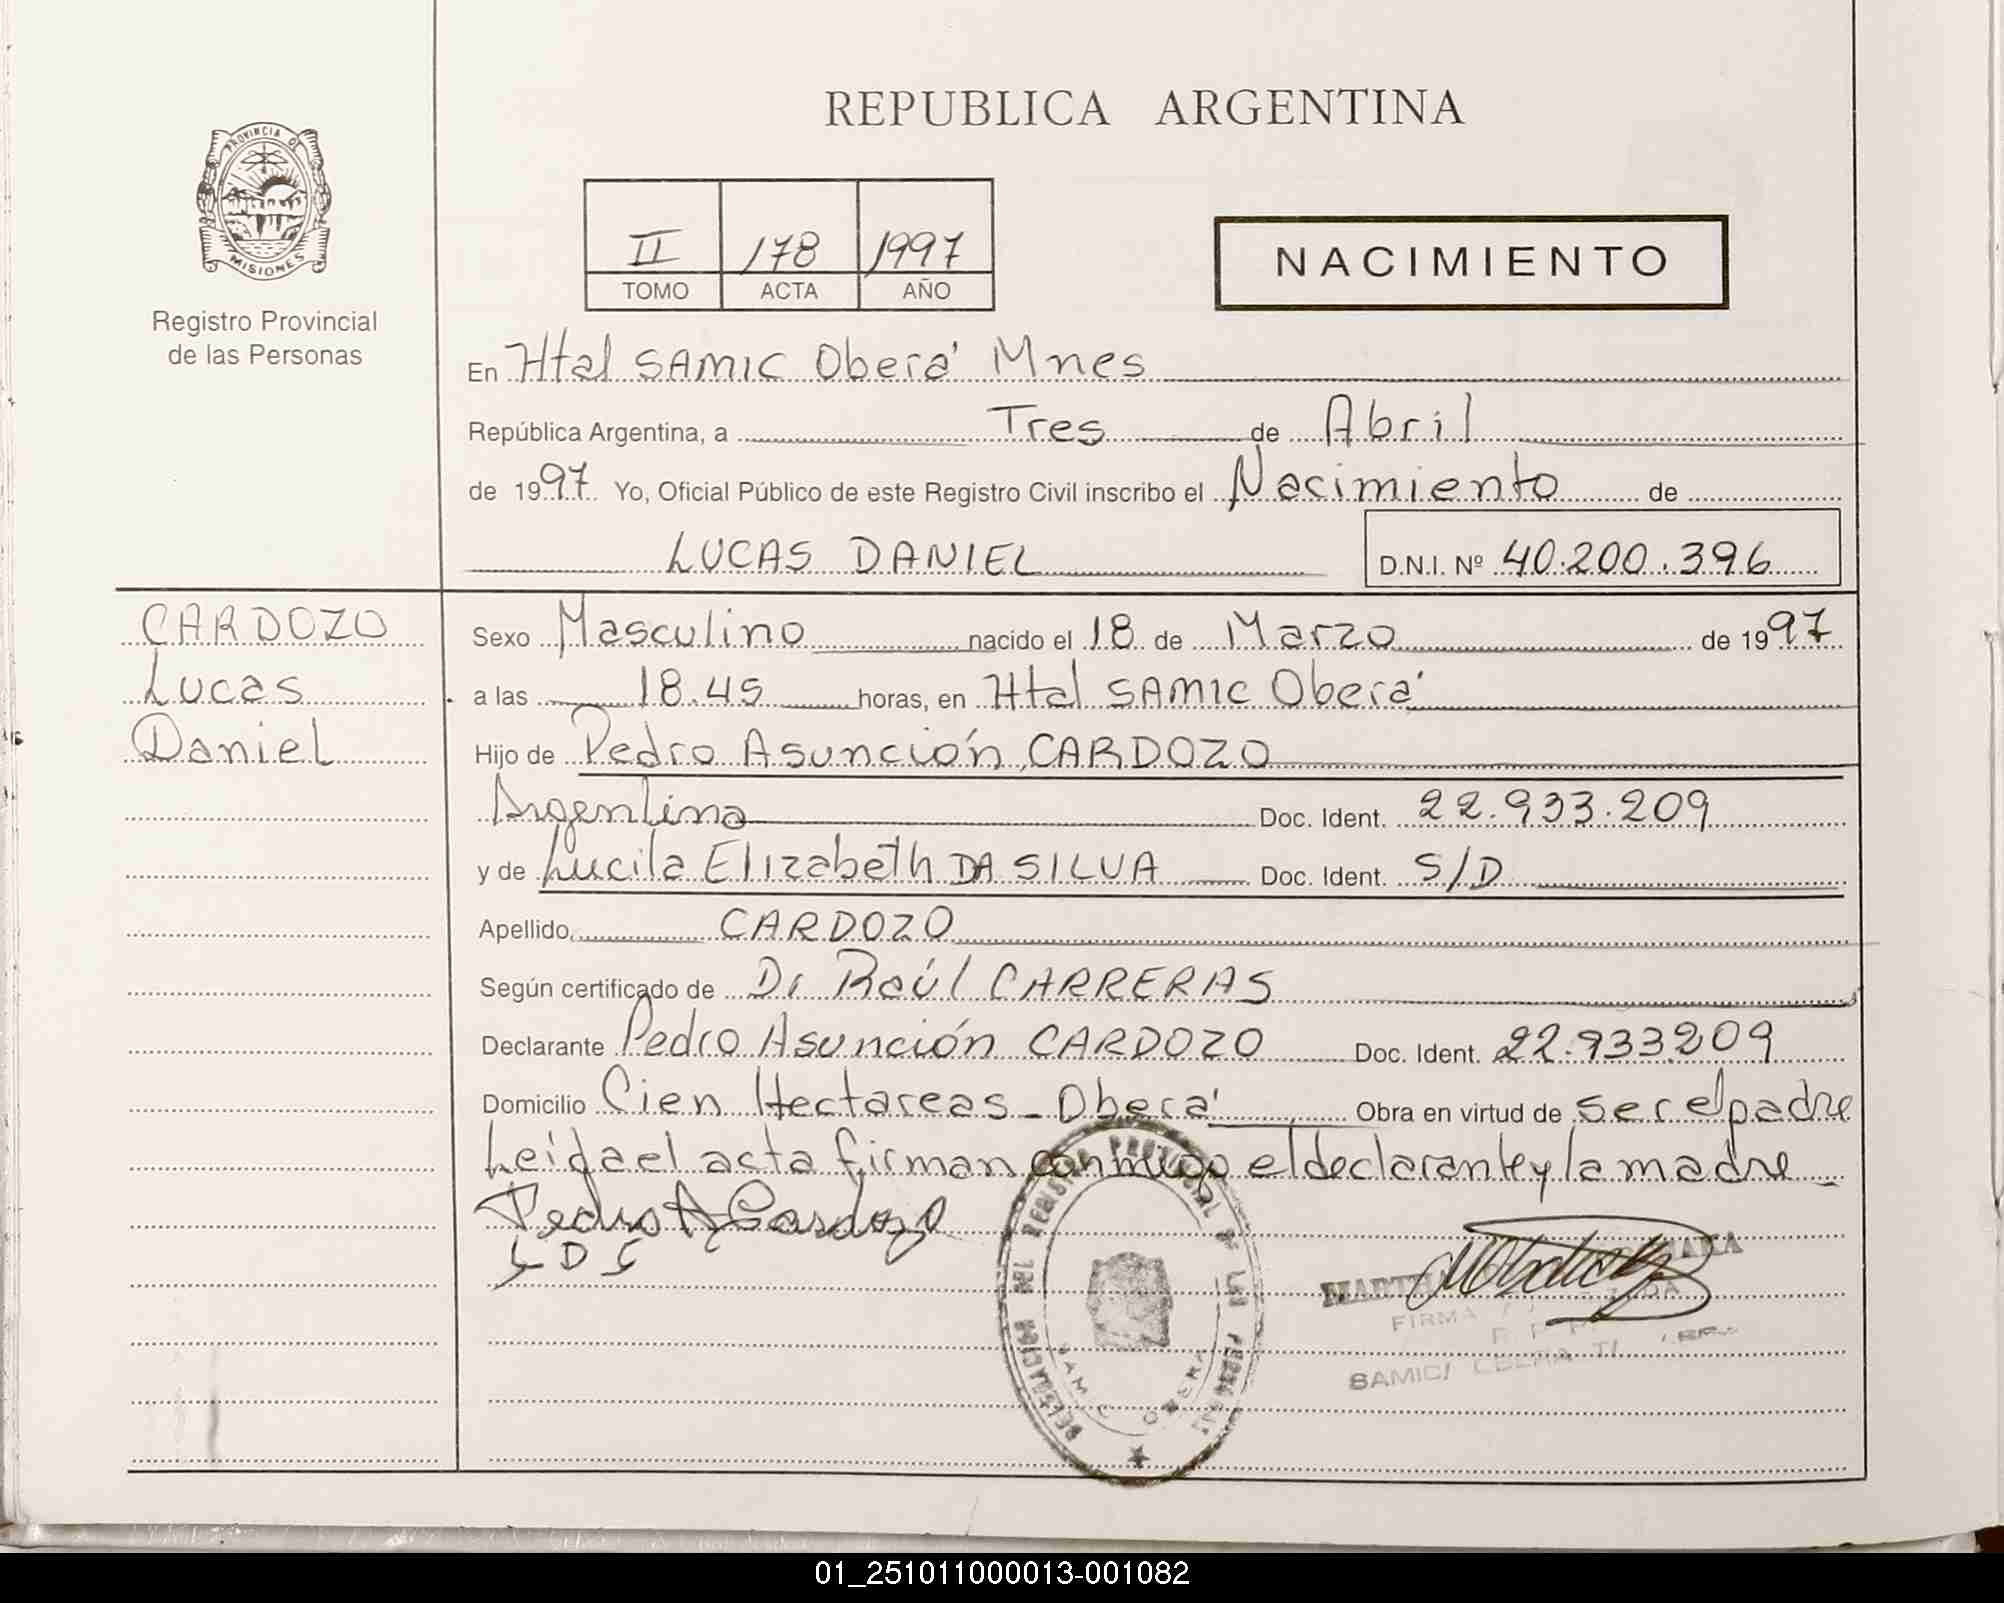 REPUBLICA ARGENTINA
PROVINCIA DE
MISIONES
Registro Provincial
de las Personas
II 178 1997
TOMO ACTA AÑO
NACIMIENTO
En Htal SAMIC Oberá Mnes
República Argentina, a Tres de Abril
de 1997 Yo, Oficial Público de este Registro Civil inscribo el Nacimiento de
LUCAS DANIEL D.N.I. Nº 40.200.396
CARDOZO
Lucas
Daniel
Sexo Masculino nacido el 18 de Marzo de 1997
a las 18.45 horas, en Htal SAMIC Oberá
Hijo de Pedro Asunción CARDOZO
Argentino Doc. Ident. 22.933.209
y de Lucila Elizabeth DA SILVA Doc. Ident. S/D
Apellido CARDOZO
Según certificado de Dr Raúl CARRERAS
Declarante Pedro Asunción CARDOZO Doc. Ident. 22.933209
Domicilio Cien Hectareas - Oberá Obra en virtud de ser el padre
Leida el acta firman conmigo el declarante y la madre
Pedro A Cardozo
LDS
DELEGACION DEL REGISTRO PROVINCIAL DE LAS PERSONAS
SAMIC OBERA
FIRMA
SAMIC
01_251011000013-001082